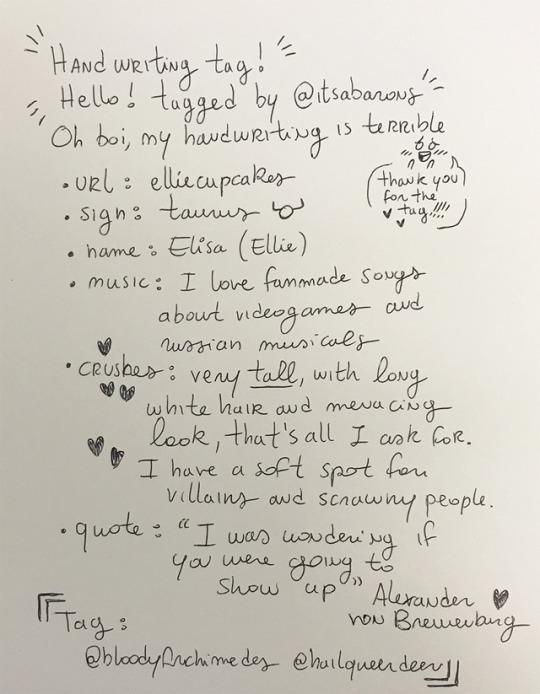 Handwriting tag!
Hello! tagged by @itsabarons
Oh boi, my handwriting is terrible
• url: elliecupcakes
thank you
for the
tag!!!!
• sign: taurus ♉
• name: Elisa (Ellie)
• music: I love fanmade songs
about videogames and
russian musicals
• crushes: very tall, with long
white hair and menacing
look, that's all I ask for.
I have a soft spot for
villains and scrawny people.
• quote: "I was wondering if
you were going to
show up" Alexander
von Brewerburg
『Tag:
@bloodyArchimedes @hailqueerdeer』